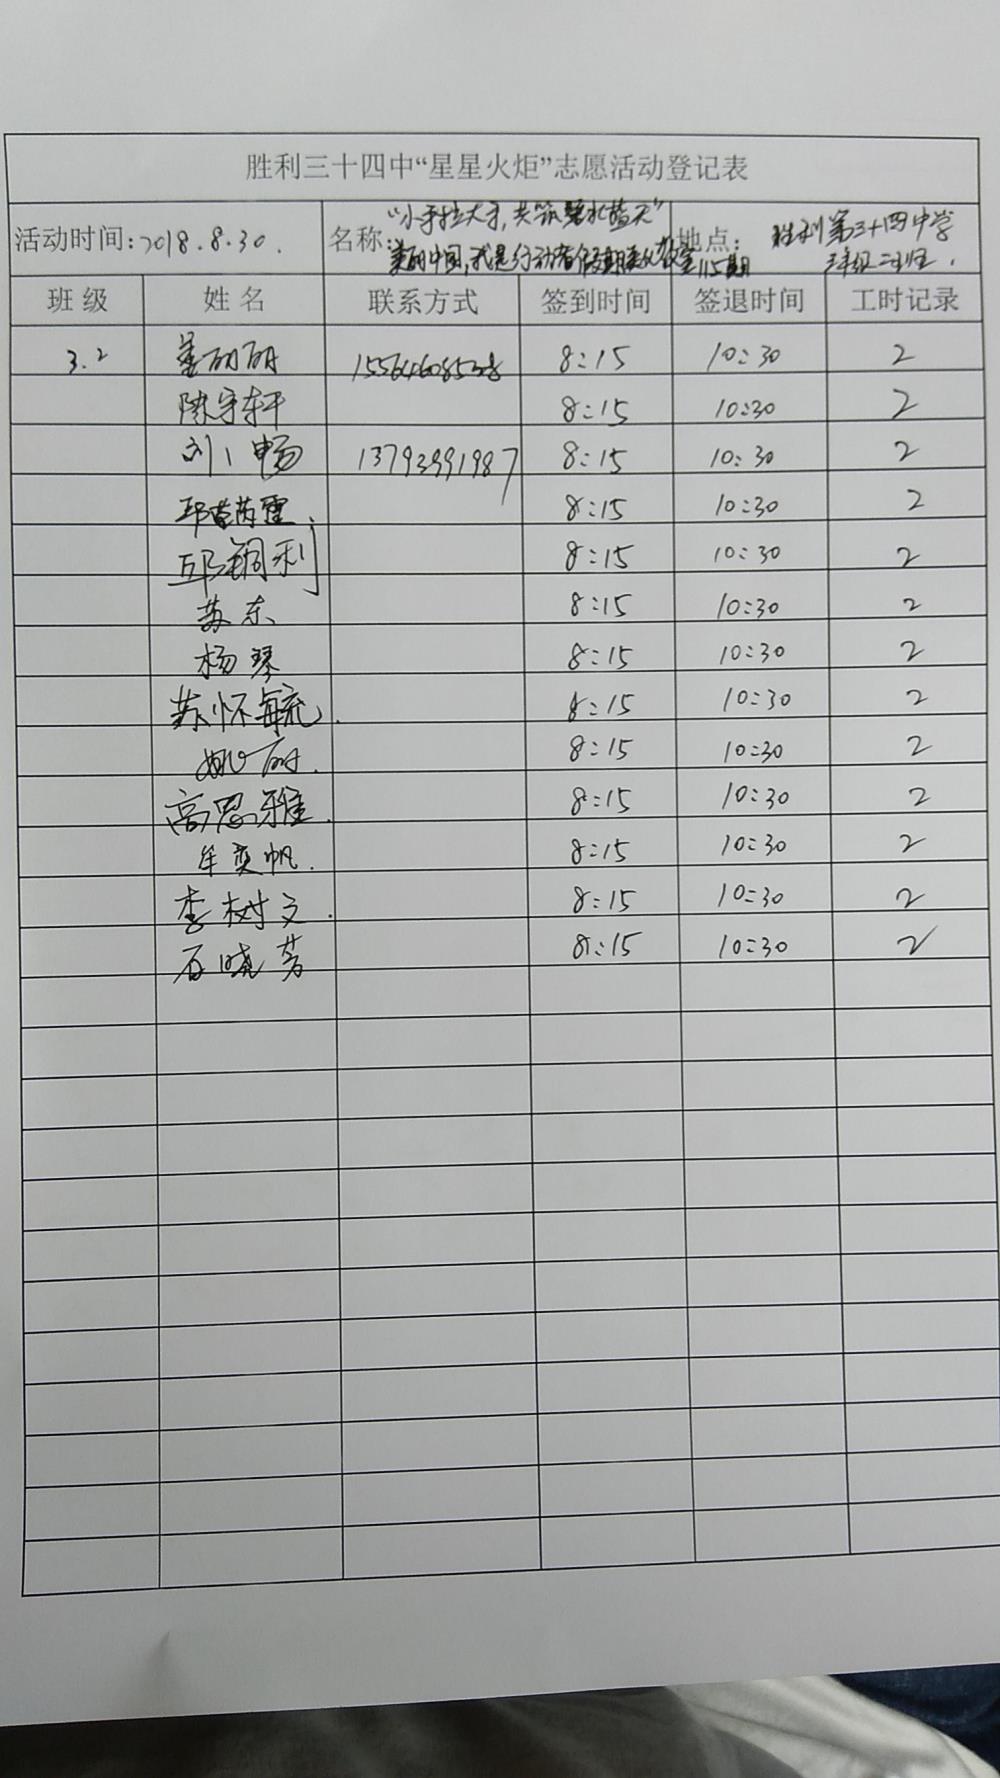 胜利三十四中“星星火炬”志愿活动登记表
活动时间:2018.8.30. 名称:“小手拉大手,共筑碧水蓝天” 美丽中国,我是行动者假期美化教室115期 地点: 胜利第三十四中学 三年级二班.
班级 姓名 联系方式 签到时间 签退时间 工时记录
3.2 姜丽丽 8:15 10:30 2
陈宇轩 8:15 10:30 2
刘畅 13793991987 8:15 10:30 2
8:15 10:30 2
邱锏利 8:15 10:30 2
苏东 8:15 10:30 2
杨琴 8:15 10:30 2
苏怀毓. 8:15 10:30 2
姚丽. 8:15 10:30 2
高思雅. 8:15 10:30 2
牟奕帆. 8:15 10:30 2
李树文. 8:15 10:30 2
石晓芳 8:15 10:30 2